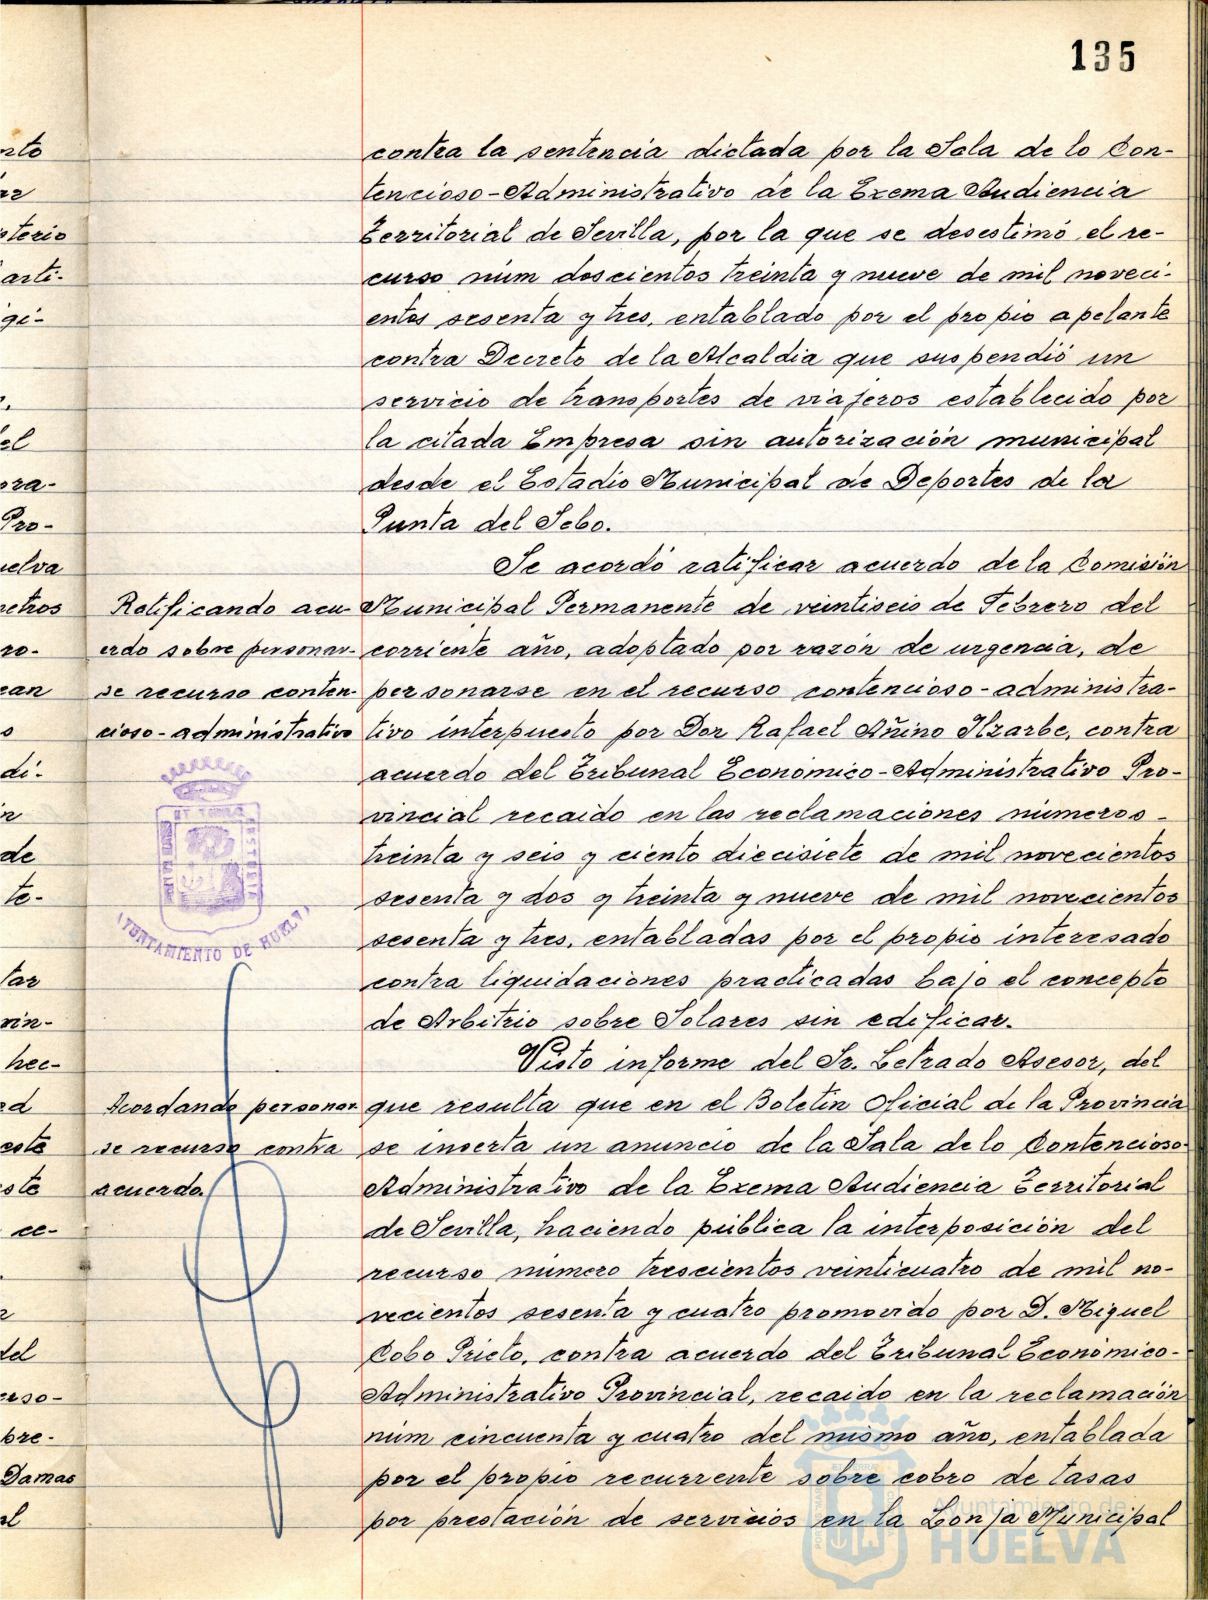 135
contra la sentencia dictada por la Sala de lo Con-
tencioso-Administrativo de la Excma Audiencia
Territorial de Sevilla, por la que se desestimó el re-
curso núm doscientos treinta y nueve de mil noveci-
entos sesenta y tres, entablado por el propio apelante
contra Decreto de la Alcaldia que suspendió un
servicio de transportes de viajeros establecido por
la citada Empresa sin autorización municipal
desde el Estadio Municipal de Deportes de la
Punta del Sebo.
Se acordó ratificar acuerdo de la Comisión
Municipal Permanente de veintiseis de Febrero del
corriente año, adoptado por razón de urgencia, de
personarse en el recurso contencioso-administra-
tivo interpuesto por Don Rafael Añino Ilzarbe, contra
acuerdo del Tribunal Económico-Administrativo Pro-
vincial recaido en las reclamaciones números-
treinta y seis y ciento diecisiete de mil novecientos
sesenta y dos y treinta y nueve de mil novecientos
sesenta y tres, entabladas por el propio interesado
contra liquidaciones practicadas bajo el concepto
de Arbitrio sobre Solares sin edificar.
Visto informe del Sr. Letrado Asesor, del
que resulta que en el Boletin Oficial de la Provincia
se inserta un anuncio de la Sala de lo Contencioso-
Administrativo de la Excma Audiencia Territorial
de Sevilla, haciendo pública la interposición del
recurso número trescientos veinticuatro de mil no-
vecientos sesenta y cuatro promovido por D. Miguel
Cobo Prieto, contra acuerdo del Tribunal Económico-
Administrativo Provincial, recaido en la reclamación
núm cincuenta y cuatro del mismo año, entablada
por el propio recurrente sobre cobro de tasas
por prestación de servicios en la Lonja Municipal
Ratificando acu-
erdo sobre personar-
se recurso conten-
cioso-administrativo
AYUNTAMIENTO DE HUELVA
Acordando personar
se recurso contra
acuerdo.
nto
ar
sterio
arti-
gi-
el
ora-
Pro-
uelva
netros
ro-
ean
o
di-
n
de
te-
tar
vin-
hec-
ed
este
ste
ce-
del
erso-
bre-
Damas
al
Ayuntamiento de
HUELVA